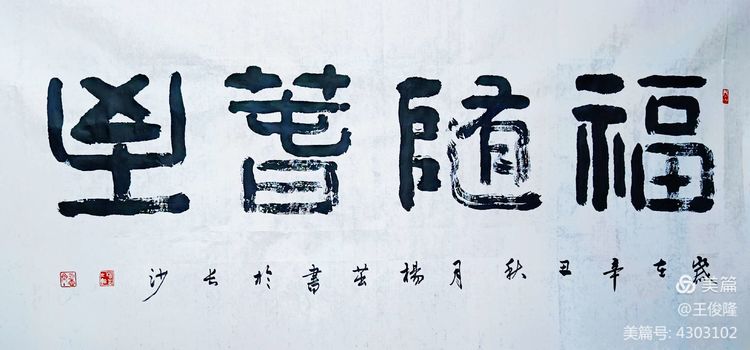 福隨善至
歲在辛丑秋月楊書於长沙
美篇
@王俊隆
美篇号: 4303102